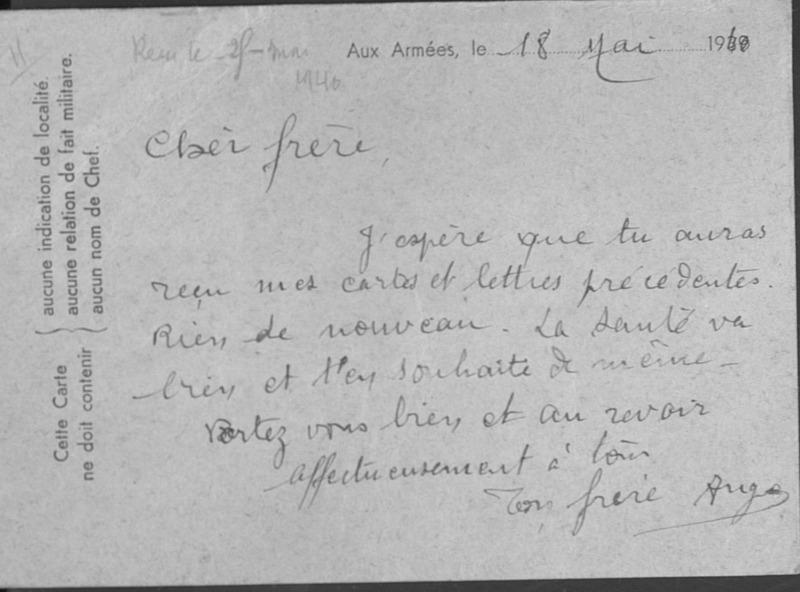 11
Reçu le 25 - mai
1940
Aux Armées, le 18 Mai 1940
Cher frère,
J'espère que tu auras
reçu mes cartes et lettres précédentes.
Rien de nouveau. La santé va
bien et t'en souhaite de même -
Portez vous bien et au revoir
affectueusement à tous
Ton frère Ange
Cette Carte
ne doit contenir
aucune indication de localité
aucune relation de fait militaire.
aucun nom de Chef.